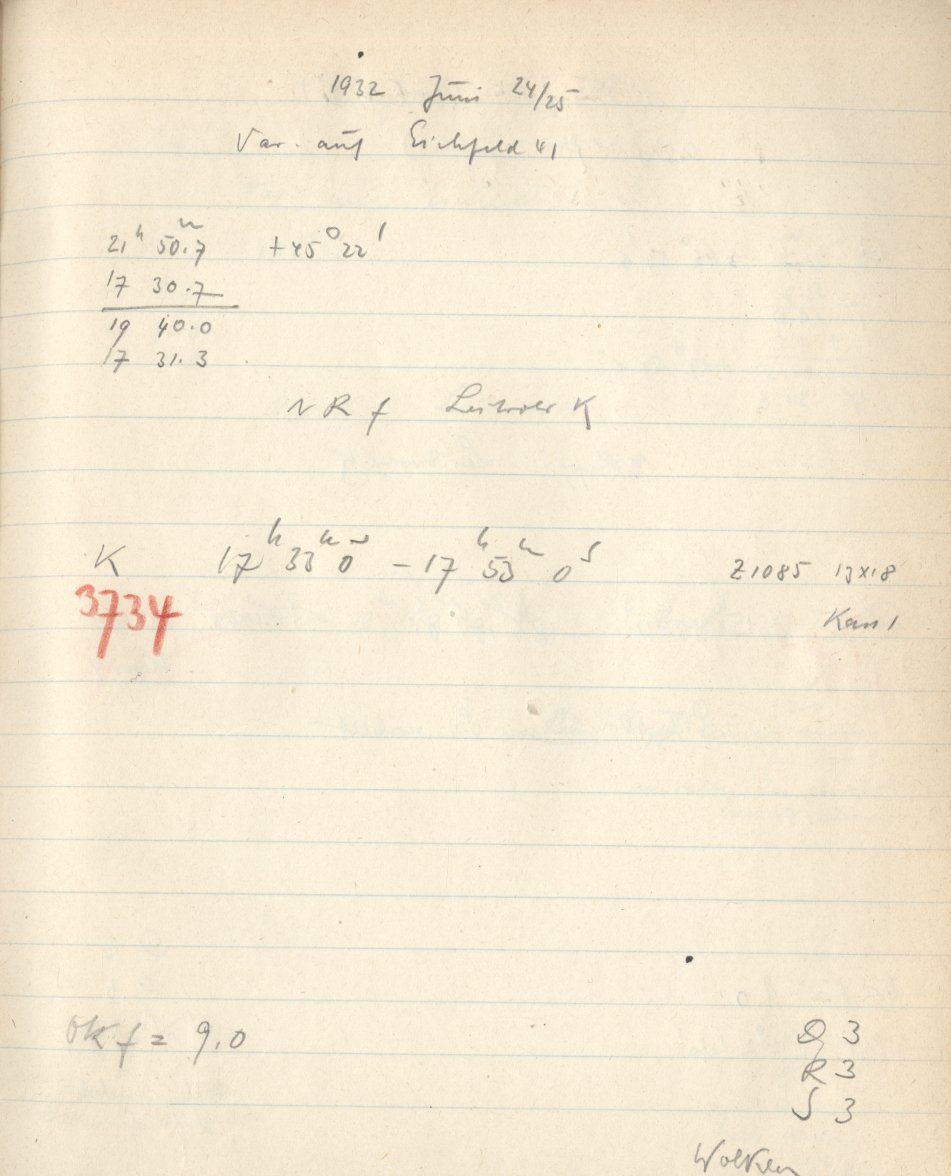 1932 Juni 24/25
Var. auf Eichfeld 41
21ʰ 50.7ᵐ +45° 22'
17 30.7
19 40.0
17 31.3
N R f K
K 17ʰ 33ᵐ 0ˢ – 17ʰ 53ᵐ 0ˢ Z1085 13x18
3734 Kass 1
Ok f = 9,0 Q 3
R 3
S 3
Wolken